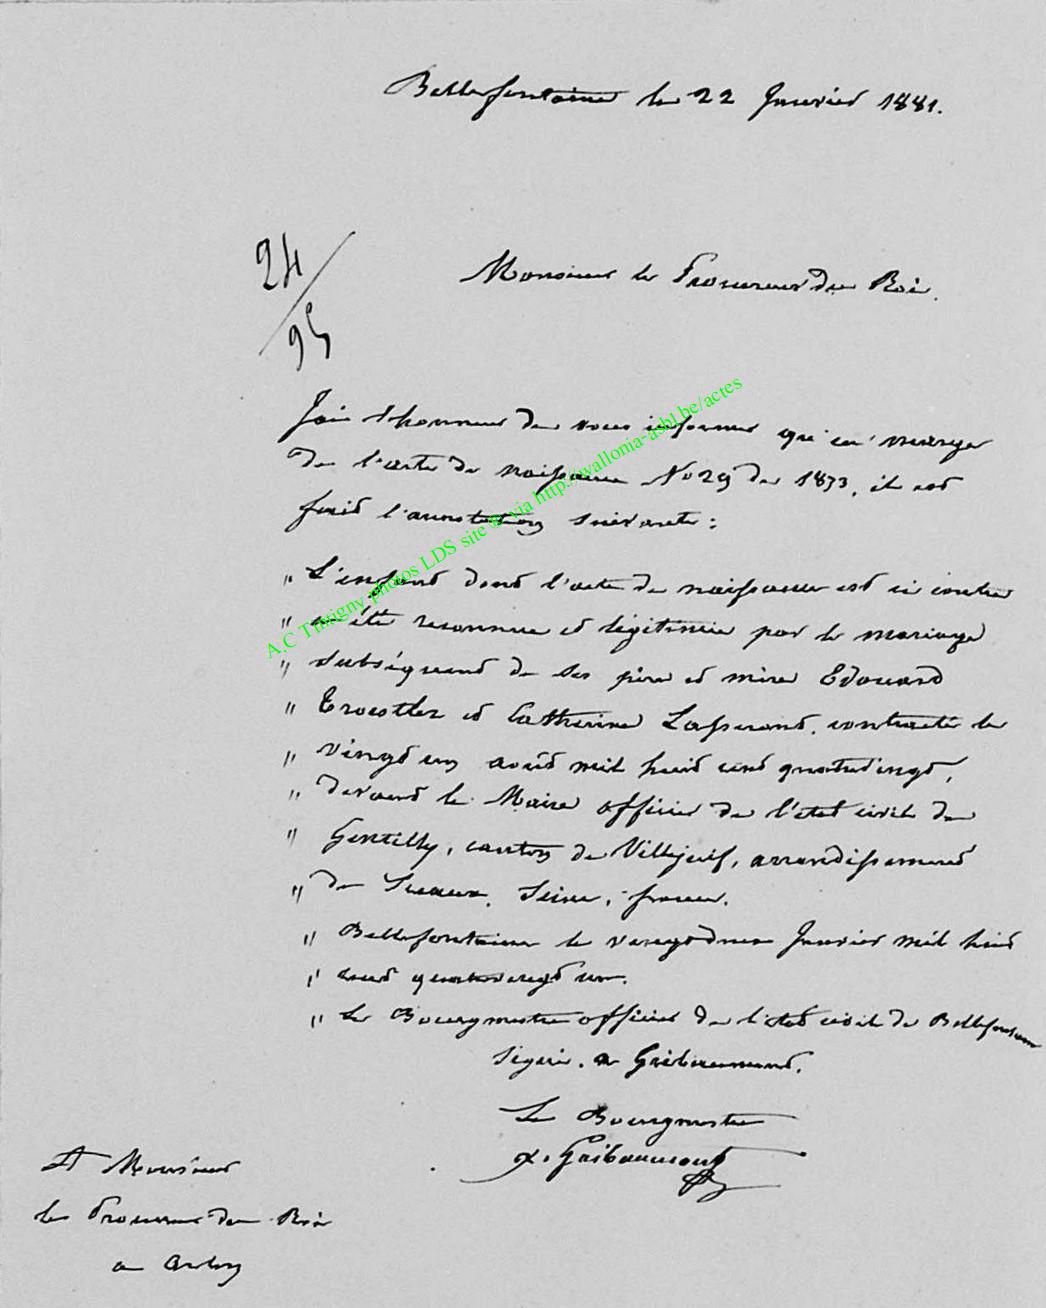 Bellefontaine le 22 Janvier 1881.
24
/
95
Monsieur le Procureur du Roi.
J'ai l'honneur de vous informer qu'en marge
de l'acte de naissance No 29 de 1873, il est
fait l'annotation suivante :
" L'enfant dont l'acte de naissance est ci contre
" a été reconnue et légitimée par le mariage
" subséquent de ses père et mère Edouard
" Troestler et Catherine Lasserand, contracté le
" vingt un août mil huit cent quatrevingt,
" devant le Maire officier de l'état civil de
" Gentilly, canton de Villejuif, arrondissement
" de Sceaux, Seine, france.
" Bellefontaine le vingt deux Janvier mil huit
" cent quatrevingt un.
" Le Bourgmestre officier de l'état civil de Bellefontaine
Signé. Gribaumont.
Le Bourgmestre
Gribaumont
A Monsieur
le Procureur du Roi
a Arlon
A.C Tintigny photos LDS site © via http://wallonia-asbl.be/actes